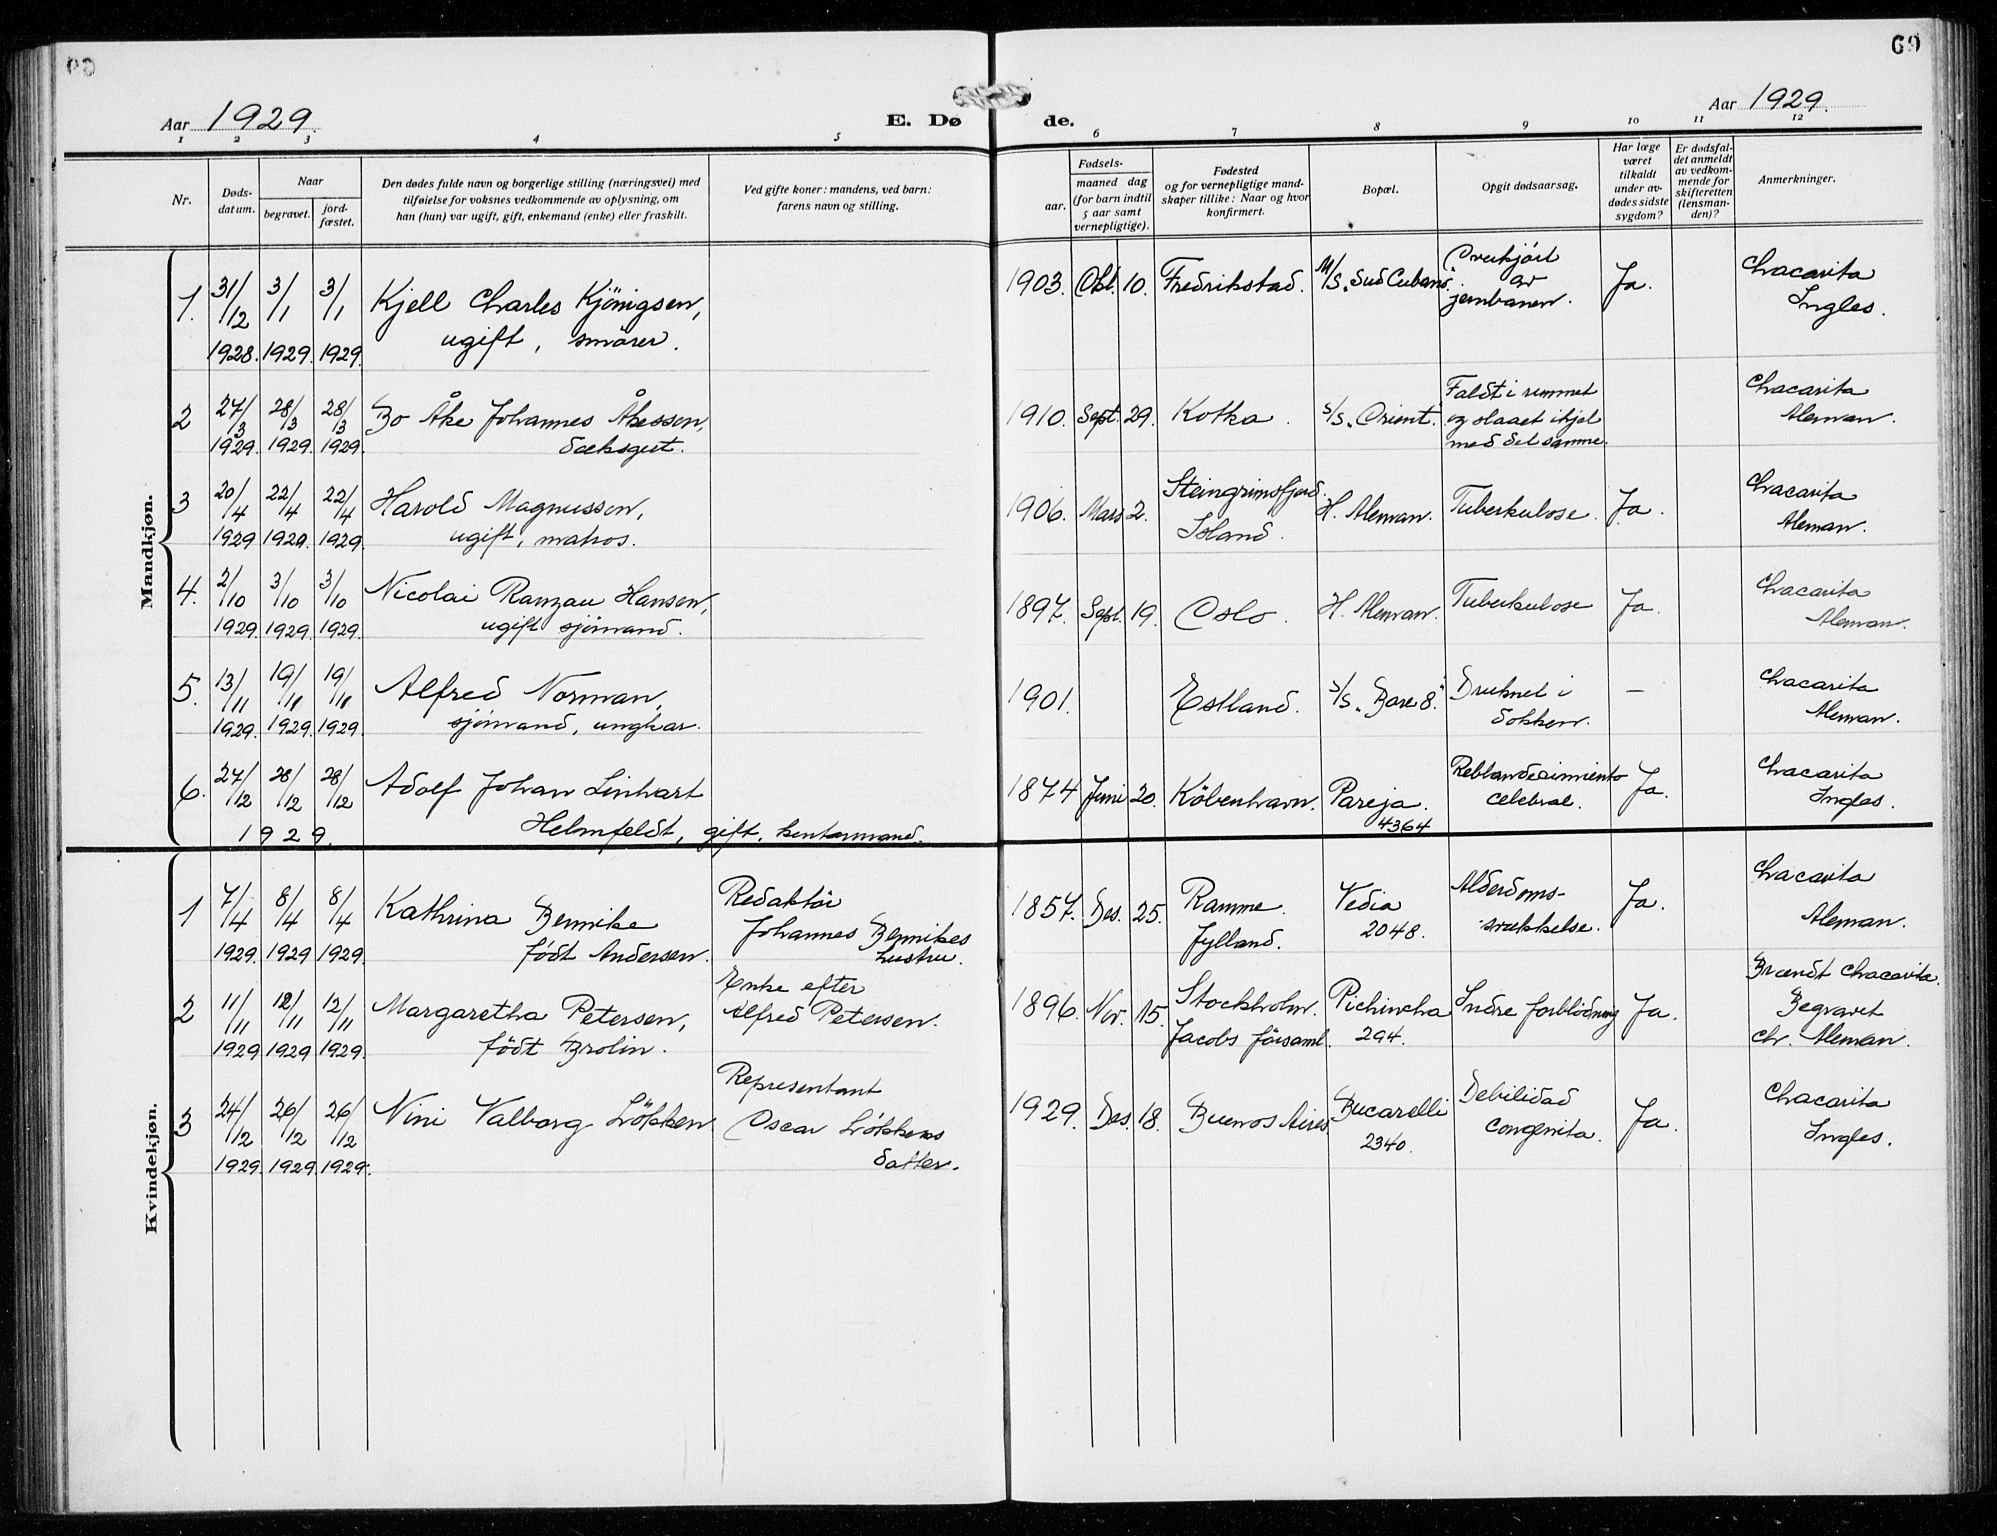 69
Aar 1929.
Aar 1929.
E. Dø
de.
1 2 3 4 5 6 7 8 9 10 11 12
Nr.
Døds-
datum.
Naar
begravet.
jord-
fæstet.
Den dødes fulde navn og borgerlige stilling (næringsvei) med
tilføielse for voksnes vedkommende av oplysning, om
han (hun) var ugift, gift, enkemand (enke) eller fraskilt.
Ved gifte koner: mandens, ved barn:
farens navn og stilling.
Fødsels-
aar.
maaned dag
(for barn indtil
5 aar samt
vernepligtige).
Fødested
og for vernepligtige mand-
skaper tillike: Naar og hvor
konfirmert.
Bopæl.
Opgit dødsaarsag.
Har læge
været
tilkaldt
under av-
dødes sidste
sygdom?
Er dødsfal-
det anmeldt
av vedkom-
mende for
skifteretten
(lensman-
den)?
Anmerkninger.
Mandkjøn.
1. 31/12 1928. 3/1 1929. 3/1 1929.
Kjell Charles Kjönigsen,
ugift, smörer.
1903. Okt. 10. Fredrikstad. M/S. "Sud Cubano".
Overkjört
av
jernbanen.
Ja.
Chacarita
Ingles.
2 27/3 1929. 28/3 1929. 28/3 1929.
Bo Åke Johannes Åkesson,
dæksgut.
1910. Sept. 29. Kotka. S/S. "Orient".
Faldt i rummet
og slaaet ihjel
med det samme.
Chacarita
Aleman.
3 20/4 1929 22/4 1929. 22/4 1929.
Harold Magnusson,
ugift, matros.
1906. Mars 2.
Steingrimsfjord.
Island.
H. Aleman. Tuberkulose. Ja.
Chacarita
Aleman.
4. 2/10 1929. 3/10 1929. 3/10 1929.
Nicolai Ranzau Hansen,
ugift sjömand.
1897. Sept. 19. Oslo. H. Aleman. Tuberkulose Ja.
Chacarita
Aleman.
5. 13/11 1929. 19/11 1929. 19/11 1929.
Alfred Norman,
sjömand, ungkar.
1901. Estland. S/S. "Bore 8."
Druknet i
dokken.
—
Chacarita
Aleman.
6. 27/12 28/12 28/12
1929.
Adolf Johan Linhart
Helmfeldt, gift, kontormand.
1874 Juni 20. Köbenhavn.
Pareja.
4364
Reblandecimiento
celebral.
Ja.
Chacarita
Ingles.
Kvindekjøn.
1 7/4 1929. 8/4 1929 8/4 1929.
Kathrina Bennike
född Andersen.
Redaktör
Johannes Bennikes
hustru.
1857. Des. 25.
Ramme.
Jylland.
Vedia
2048.
Alderdoms-
svækkelse.
Ja.
Chacarita
Aleman.
2 11/11 1929 12/11 1929 12/11 1929.
Margaretha Petersen,
född Brolin.
Enke efter
Alfred Petersen.
1896. Nov. 15.
Stockholm.
Jacobs församl.
Pichincha
294.
Indre forblödning Ja.
Brændt Chacarita.
Begravet
Ch. Aleman.
3 24/12 1929. 26/12 1929. 26/12 1929.
Nini Valborg Lökken
Representant
Oscar Lökkens
datter.
1929. Des. 18. Buenos Aires.
Bucarelli
2340.
Debilidad
congenita.
Ja.
Chacarita
Ingles.